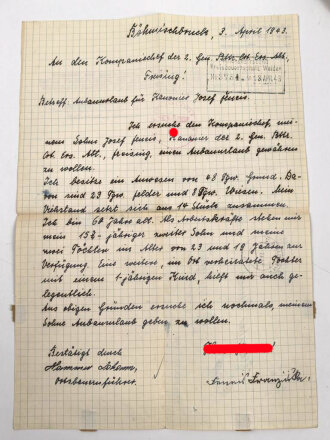 Böhmischbruck, 3. April 1943.
An den Kompaniechef der 2. Gen. Bttr. Ers. Abt.
Freising!
Betreff: Anbauurlaub für Kanonier Josef
Ich ersuche den Kompaniechef, mei-
nem Sohne Josef Kanonier der 2. Gen. Bttr.
Ers. Abt., Freising, einen Anbauurlaub gewähren
zu wollen.
Ich besitze ein Anwesen von 48 Tgw. Grund. Da-
von sind 23 Tgw. Felder und 8 Tgw. Wiesen. Mein
Viehstand setzt sich aus 14 Stück zusammen.
Ich bin 60 Jahre alt. Als Arbeitskräfte stehen mir
mein 15½-jähriger zweiter Sohn und meine
zwei Töchter im Alter von 23 und 19 Jahren zur
Verfügung. Eine weitere, im Ort verheiratete Tochter
mit einem 1-jährigen Kind, hilft mir auch ge-
legentlich.
Aus obigen Gründen ersuche ich nochmals, meinem
Sohne Anbauurlaub geben zu wollen.
Bestätigt durch
Hammer
Ortsbauernführer.